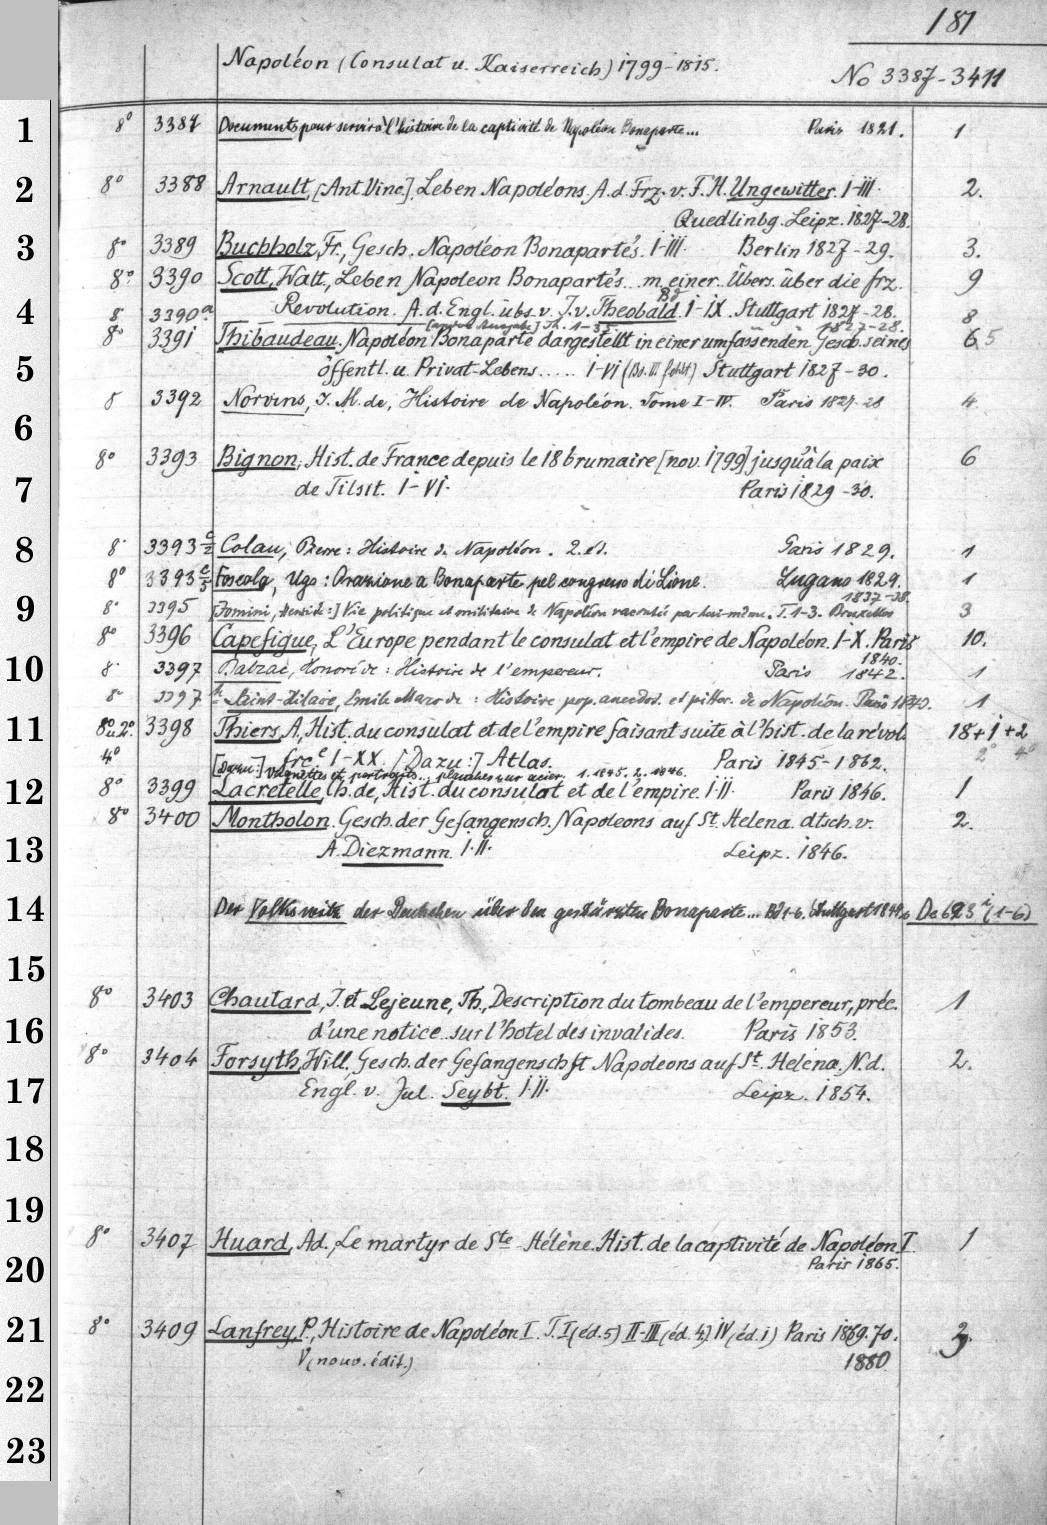 181
Napoléon (Consulat u. Kaiserreich) 1799-1815.
No 3387-3411
1 8° 3387 Documents pour servir à l'histoire de la captivité de Napoléon Bonaparte... Paris 1821. 1
2 8° 3388 Arnault, [Ant. Vinc.], Leben Napoléons. A. d. Frz. v. F. H. Ungewitter. I-III. 2.
Quedlinbg. Leipz. 1827-28.
3 8° 3389 Buchholz, Fr., Gesch. Napoléon Bonapartés. I-III. Berlin 1827-29. 3.
8° 3390 Scott, Walt., Leben Napoleon Bonapartés... m. einer Übers. über die frz. 9
4 Revolution. A. d. Engl. übs. v. J. v. Theobald. Bd I-IX. Stuttgart 1827-28.
8 3390a Th. 1-35 1827-28. 8
8° 3391 Thibaudeau, Napoléon Bonaparte dargestellt in einer umfassenden Gesch. seines 6 5
5 öffentl. u. Privat-Lebens..... I-VI (Bd. III fehlt) Stuttgart 1827-30.
8 3392 Norvins, J. M. de, Histoire de Napoléon. Tome I-IV. Paris 1827-28 4
6
8° 3393 Bignon, Hist. de France depuis le 18 brumaire [nov. 1799] jusqu'à la paix 6
7 de Tilsit. I-VI. Paris 1829-30.
8 8° 3393 c/2 Colau, Pierre: Histoire de Napoléon. 2. éd. Paris 1829. 1
8° 3393 c/3 Foscolo, Ugo: Orazione a Bonaparte pel congresso di Lione. Lugano 1829. 1
1837-38.
9 8° 3395 [Jomini, Henri de:] Vie politique et militaire de Napoléon racontée par lui-même. T. 1-3. Bruxelles 3
8° 3396 Capefigue, L'Europe pendant le consulat et l'empire de Napoléon. I-X. Paris 10.
1840.
10 8° 3397 Balzac, Honoré de: Histoire de l'empereur. Paris 1842. 1
8° 3397 Saint-Hilaire, Emile Marco de: Histoire pop. anecdot. et pittor. de Napoléon. Paris 1
11 8° u. 2° 3398 Thiers, A., Hist. du consulat et de l'empire faisant suite à l'hist. de la révol. 18+1+2
2° 4°
4° frce I-XX. [Dazu:] Atlas. Paris 1845-1862.
[Dazu:] Vignettes et portraits... planches sur acier. 1. 1845. 2. 1846.
12 8° 3399 Lacretelle, Ch. de, Hist. du consulat et de l'empire. I-II. Paris 1846. 1
8° 3400 Montholon. Gesch. der Gefangensch. Napoleons auf St. Helena. dtsch. v. 2.
13 A. Diezmann. I. II. Leipz. 1846.
14 Der Volkswitz der Deutschen über den gestürzten Bonaparte... Bd 1-6. Stuttgart 1849 De 623 i (1-6)
15
8° 3403 Chautard, J. et Lejeune, Th., Description du tombeau de l'empereur, préc. 1
16 d'une notice sur l'hotel des invalides. Paris 1853.
8° 3404 Forsyth, Will., Gesch. der Gefangenschft Napoleons auf St. Helena. N. d. 2.
17 Engl. v. Jul. Seybt. I. II. Leipz. 1854.
18
19
8° 3407 Huard, Ad., Le martyr de Ste Hélène. Hist. de la captivité de Napoléon I 1
20 Paris 1865.
21 8° 3409 Lanfrey, P., Histoire de Napoléon I. T. I (éd. 5) II-III (éd. 4.) IV (éd. 1) Paris 1869.70. 3.
V (nouv. édit.) 1880
22
23